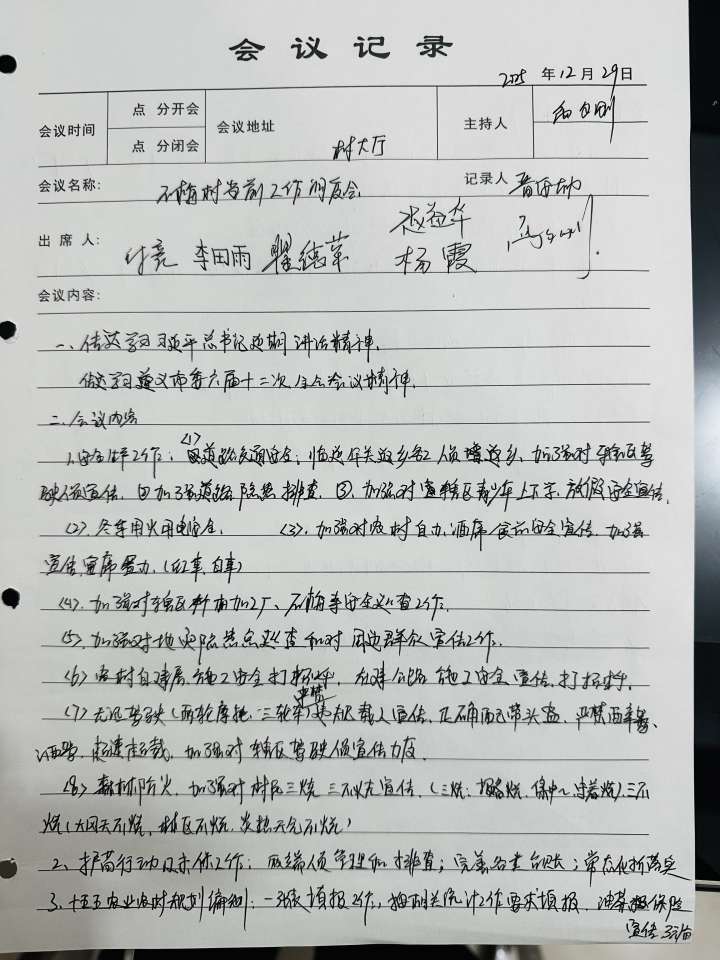 会议记录
2025 年 12 月 29 日
会议时间 点 分开会 会议地址 村大厅 主持人
点 分闭会
会议名称: 石梅村当前工作调度会 记录人
出席人: 李田雨 瞿德华 赵益华 杨霞
会议内容:
一、传达学习习近平总书记近期讲话精神。
传达学习遵义市委六届十二次全会会议精神。
二、会议内容
1、安全生产工作:<1>道路交通安全:临近年关返乡务工人员返乡,加强对辖区驾
驶人员宣传,②加强道路隐患排查,③、加强对辖区青少年上下学,放假安全宣传。
(2)、冬季用火用电安全。 (3)、加强对农村自办酒席食品安全宣传,加强
宣传,宴席置办,(红事、白事)
(4)、加强对辖区料加工厂、石梅寺安全巡查工作。
(5)、加强对地灾隐患点巡查和对周边群众宣传工作。
(6)农村自建房施工安全打招呼,在建公路施工安全宣传,打招呼。
(7)无证驾驶(两轮摩托、三轮车)严禁载人宣传,正确配带头盔,严禁酒驾、
超速超载,加强对辖区驾驶人员宣传力度。
(8)森林防火,加强对村民三烧三不烧宣传,(三烧: 集中烧),三不
烧(大风天不烧,林区不烧,炎热天气不烧)
2、护苗行动及未保工作:两端人员管理和排查;完善各类台账;常态化抓落实
3、十五五农业农村规划编制:一张表填报工作,按相关统计工作要求填报,油菜保险
宣传